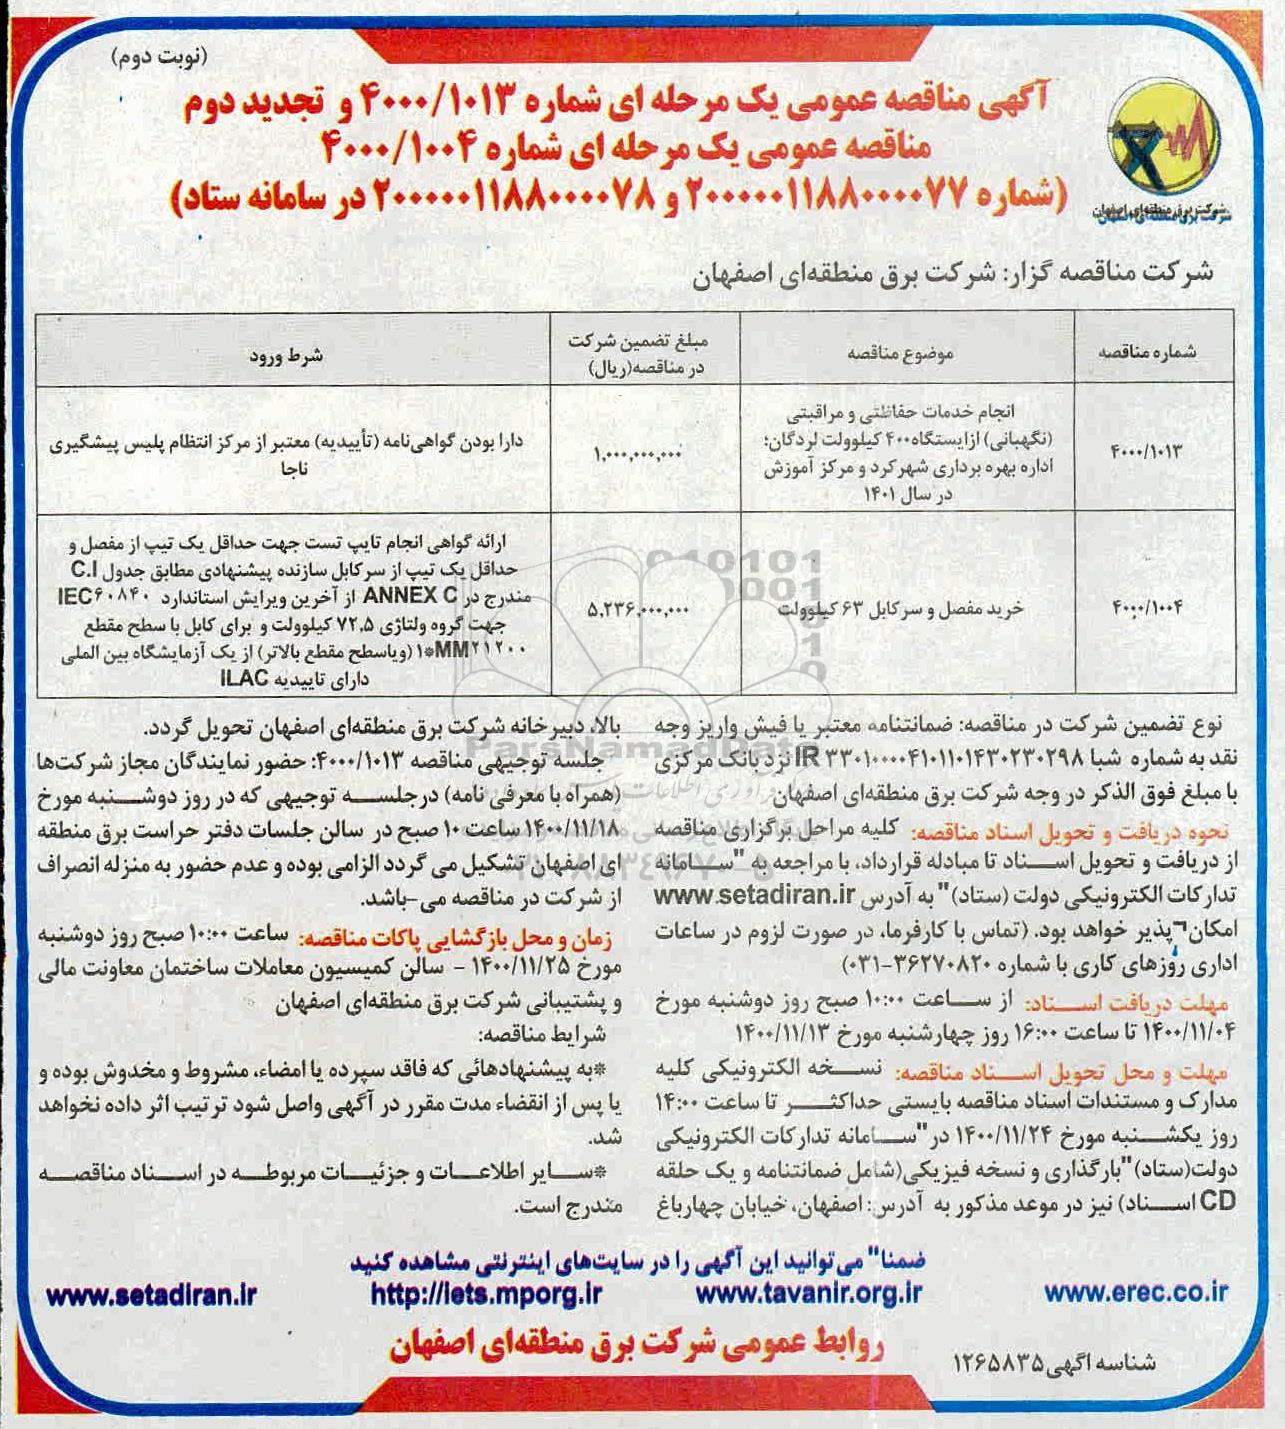 (نوبت دوم)
آگهی مناقصه عمومی یک مرحله ای شماره ۴۰۰۰/۱۰۱۳ و تجدید دوم
مناقصه عمومی یک مرحله ای شماره ۴۰۰۰/۱۰۰۴
(شماره ۲۰۰۰۰۰۱۱۸۸۰۰۰۰۷۷ و ۲۰۰۰۰۰۱۱۸۸۰۰۰۰۷۸ در سامانه ستاد)
شرکت برق منطقه‌ای اصفهان
شرکت مناقصه گزار: شرکت برق منطقه‌ای اصفهان
شماره مناقصه
موضوع مناقصه
مبلغ تضمین شرکت
در مناقصه(ریال)
شرط ورود
۴۰۰۰/۱۰۱۳
انجام خدمات حفاظتی و مراقبتی
(نگهبانی) ازایستگاه۴۰۰ کیلوولت لردگان؛
اداره بهره برداری شهرکرد و مرکز آموزش
در سال ۱۴۰۱
۱,۰۰۰,۰۰۰,۰۰۰
دارا بودن گواهی‌نامه (تأییدیه) معتبر از مرکز انتظام پلیس پیشگیری
ناجا
۴۰۰۰/۱۰۰۴
خرید مفصل و سرکابل ۶۳ کیلوولت
۵,۲۳۶,۰۰۰,۰۰۰
ارائه گواهی انجام تایپ تست جهت حداقل یک تیپ از مفصل و
حداقل یک تیپ از سرکابل سازنده پیشنهادی مطابق جدول C.I
مندرج در ANNEX C از آخرین ویرایش استاندارد IEC۶۰۸۴۰
جهت گروه ولتاژی ۷۲,۵ کیلوولت و برای کابل با سطح مقطع
۱*MM۲۱۲۰۰ (ویاسطح مقطع بالاتر) از یک آزمایشگاه بین المللی
دارای تاییدیه ILAC
نوع تضمین شرکت در مناقصه: ضمانتنامه معتبر یا فیش واریز وجه
نقد به شماره شبا IR ۳۳۰۱۰۰۰۰۴۱۰۱۱۰۱۴۳۰۲۳۰۲۹۸ نزد بانک مرکزی
با مبلغ فوق الذکر در وجه شرکت برق منطقه‌ای اصفهان
نحوه دریافت و تحویل اسناد مناقصه: کلیه مراحل برگزاری مناقصه
از دریافت و تحویل اسناد تا مبادله قرارداد، با مراجعه به "سامانه
تدارکات الکترونیکی دولت (ستاد)" به آدرس www.setadiran.ir
امکان¬پذیر خواهد بود. (تماس با کارفرما، در صورت لزوم در ساعات
اداری روزهای کاری با شماره ۳۶۲۷۰۸۲۰-۰۳۱)
مهلت دریافت اسناد: از ساعت ۱۰:۰۰ صبح روز دوشنبه مورخ
۱۴۰۰/۱۱/۰۴ تا ساعت ۱۶:۰۰ روز چهارشنبه مورخ ۱۴۰۰/۱۱/۱۳
مهلت و محل تحویل اسناد مناقصه: نسخه الکترونیکی کلیه
مدارک و مستندات اسناد مناقصه بایستی حداکثر تا ساعت ۱۴:۰۰
روز یکشنبه مورخ ۱۴۰۰/۱۱/۲۴ در"سامانه تدارکات الکترونیکی
دولت(ستاد)"بارگذاری و نسخه فیزیکی(شامل ضمانتنامه و یک حلقه
CD اسناد) نیز در موعد مذکور به آدرس: اصفهان، خیابان چهارباغ
بالا، دبیرخانه شرکت برق منطقه‌ای اصفهان تحویل گردد.
جلسه توجیهی مناقصه ۴۰۰۰/۱۰۱۳: حضور نمایندگان مجاز شرکت‌ها
(همراه با معرفی نامه) درجلسه توجیهی که در روز دوشنبه مورخ
۱۴۰۰/۱۱/۱۸ ساعت ۱۰ صبح در سالن جلسات دفتر حراست برق منطقه
ای اصفهان تشکیل می گردد الزامی بوده و عدم حضور به منزله انصراف
از شرکت در مناقصه می-باشد.
زمان و محل بازگشایی پاکات مناقصه: ساعت ۱۰:۰۰ صبح روز دوشنبه
مورخ ۱۴۰۰/۱۱/۲۵ - سالن کمیسیون معاملات ساختمان معاونت مالی
و پشتیبانی شرکت برق منطقه‌ای اصفهان
شرایط مناقصه:
*به پیشنهادهائی که فاقد سپرده یا امضاء، مشروط و مخدوش بوده و
یا پس از انقضاء مدت مقرر در آگهی واصل شود ترتیب اثر داده نخواهد
شد.
*سایر اطلاعات و جزئیات مربوطه در اسناد مناقصه
مندرج است.
ضمنا" می‌توانید این آگهی را در سایت‌های اینترنتی مشاهده کنید
www.erec.co.ir
www.tavanir.org.ir
http://iets.mporg.ir
www.setadiran.ir
روابط عمومی شرکت برق منطقه‌ای اصفهان
شناسه آگهی۱۲۶۵۸۳۵